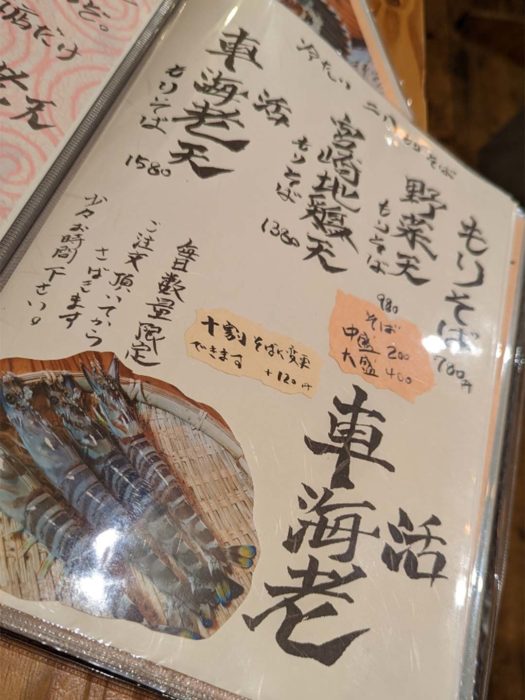 冷たい 二八もりそば
もりそば
780円
野菜天
もりそば
980
宮崎地鶏天
もりそば
1380
活
車海老天
もりそば
1580
そば
中盛 200
大盛 400
十割そばに変更
できます +120円
毎日数量限定
ご注文頂いてから
さばきます
少々お時間下さい。
活
車海老
店だけ
老天